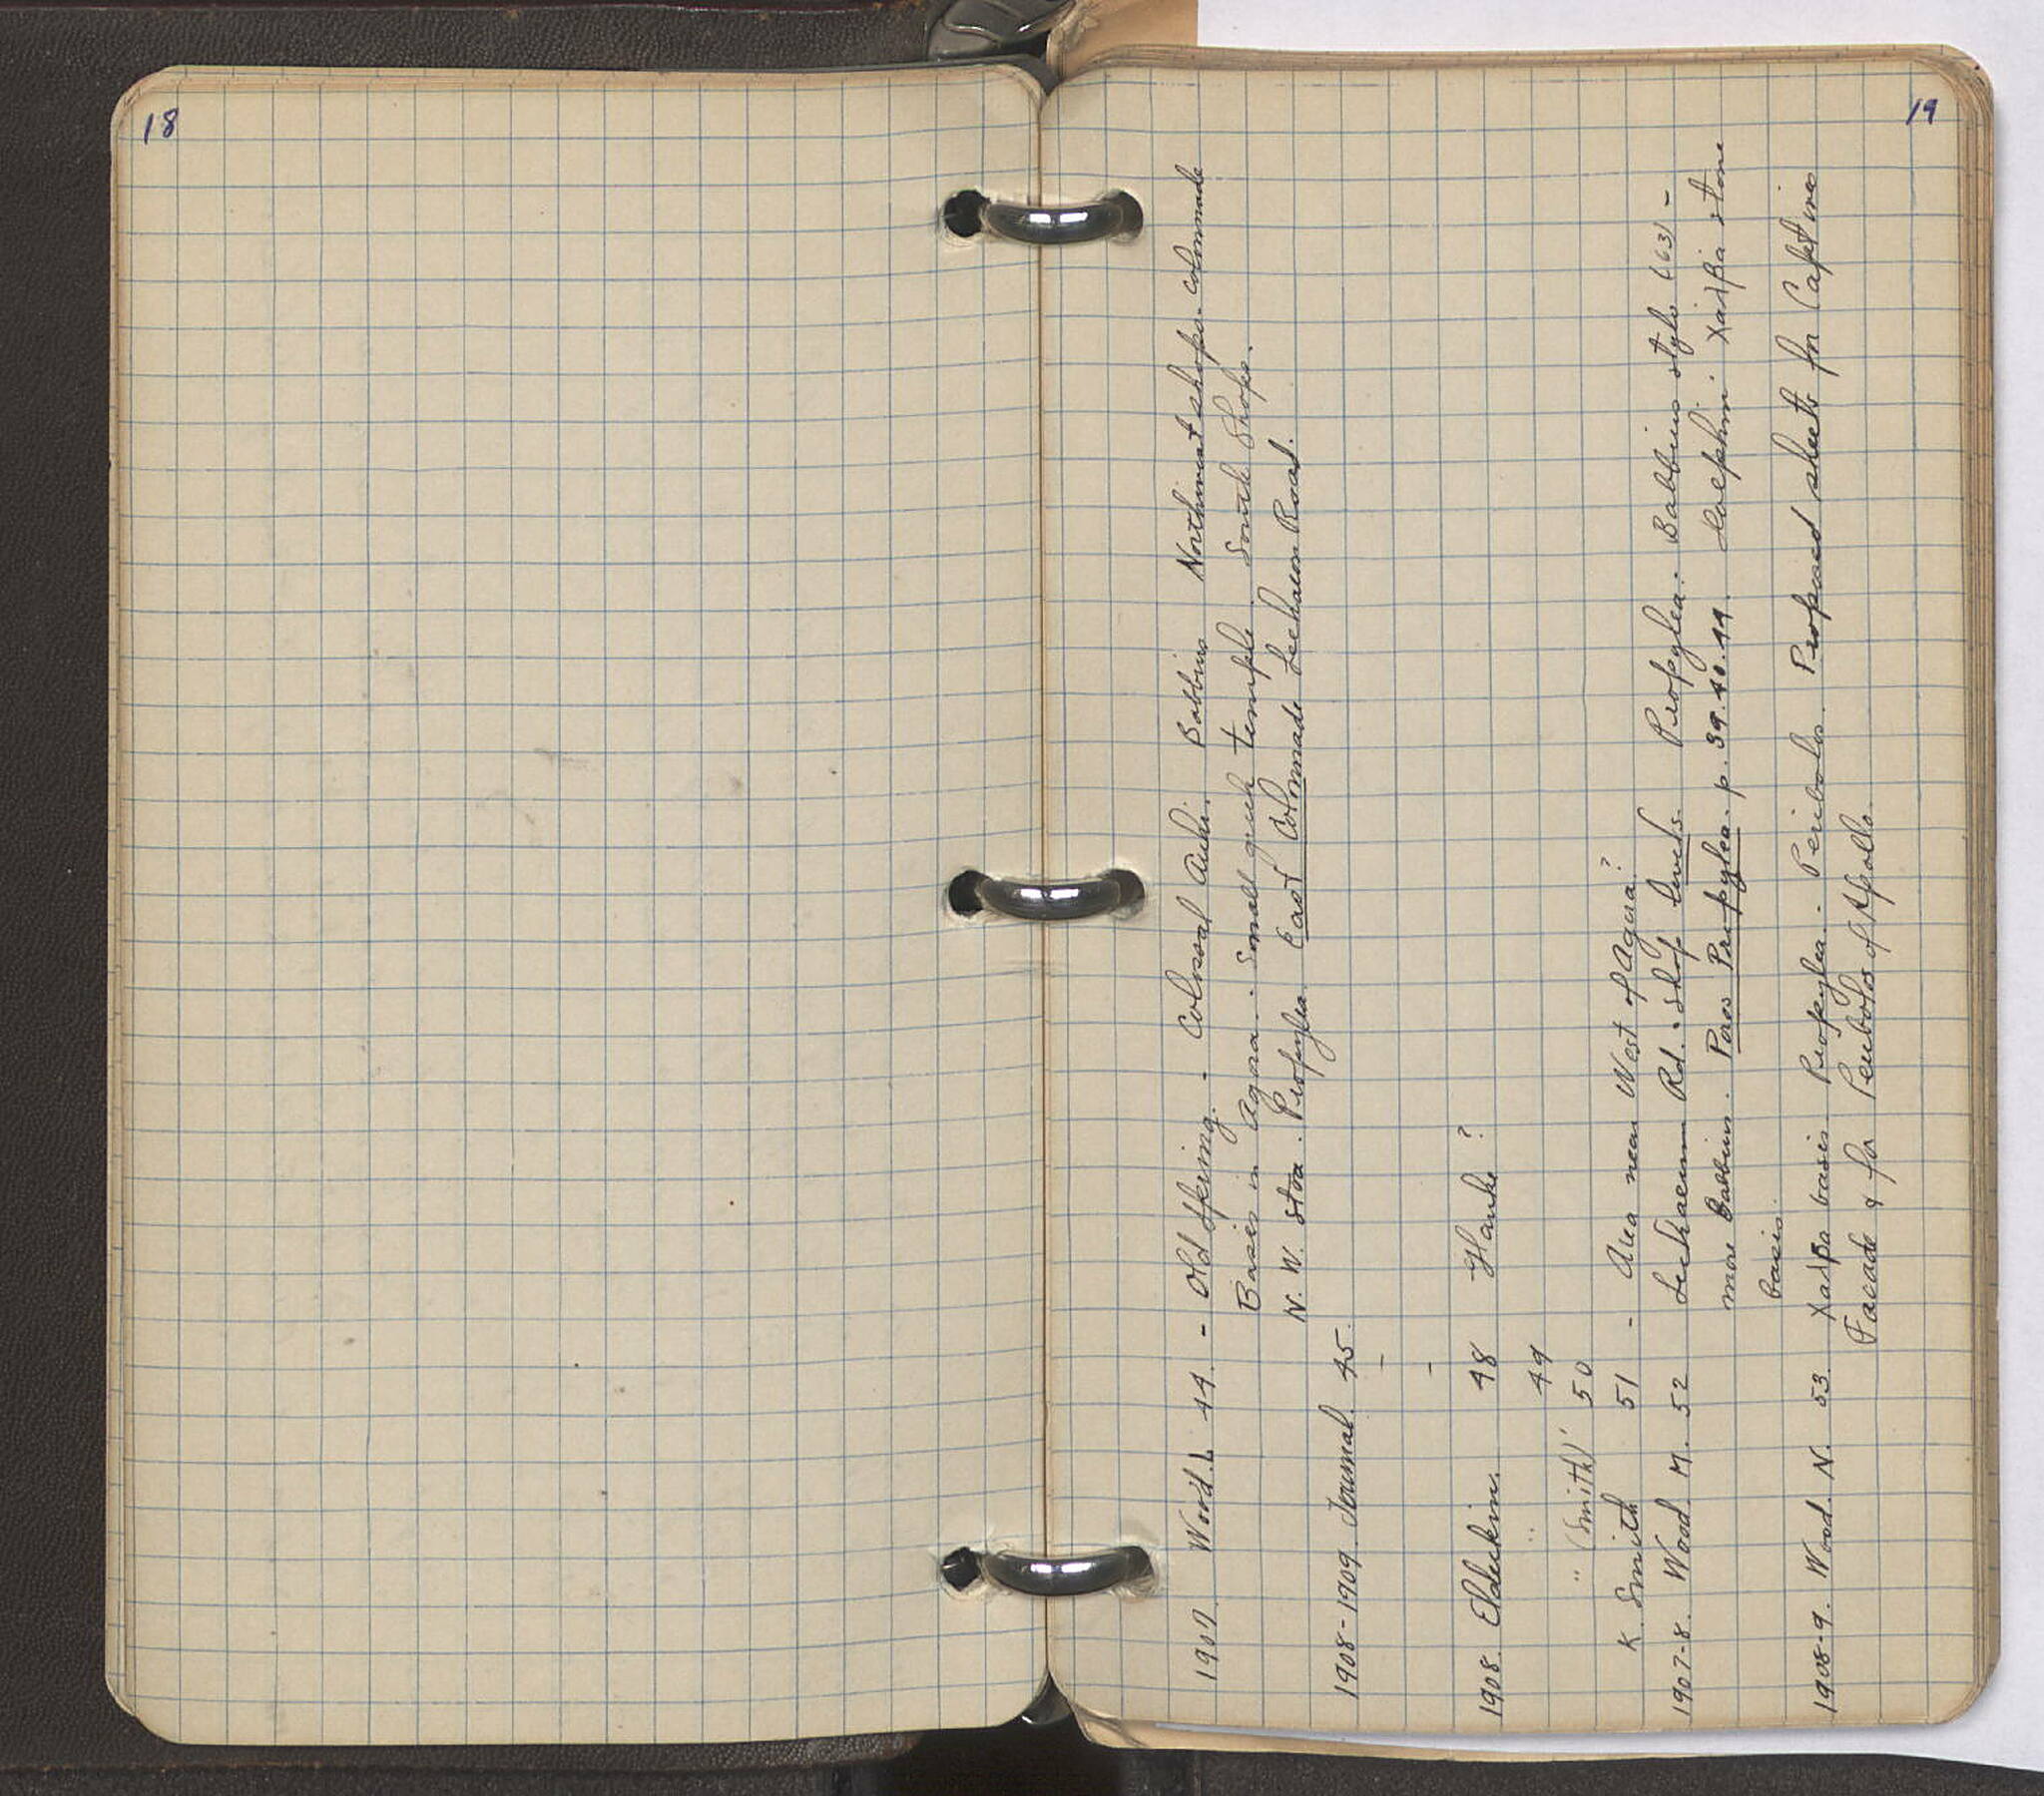 18
19
1907 Wood. L 44. - Old Spring. - Colossal Archi. Babbius Northwest shops. colonnade
Basis in Agora. - Small greek temple. South Shops.
N. W. Stoa. Propylea East Colonnade Lechaeum Road.
1908-1909 Journal. 45.
-
-
1908. Elderkin. 48 Glauke ?
" 49
" (Smith) 50
K. Smith 51 - Area near West of Agora?
1907-8. Wood M. 52 Lechaeum Rd. Shop levels. Propylea. Babbius stylo (63) -
more Babbius. Poros Propylea. p. 39. 40. 44. Josephini χαλβα stone
basis.
1908-9. Wood. N. 53. χαλβα basis Propylea. - Peribolos. Proposed sheets for Captives
Facade & for Peribolos of Apollo.